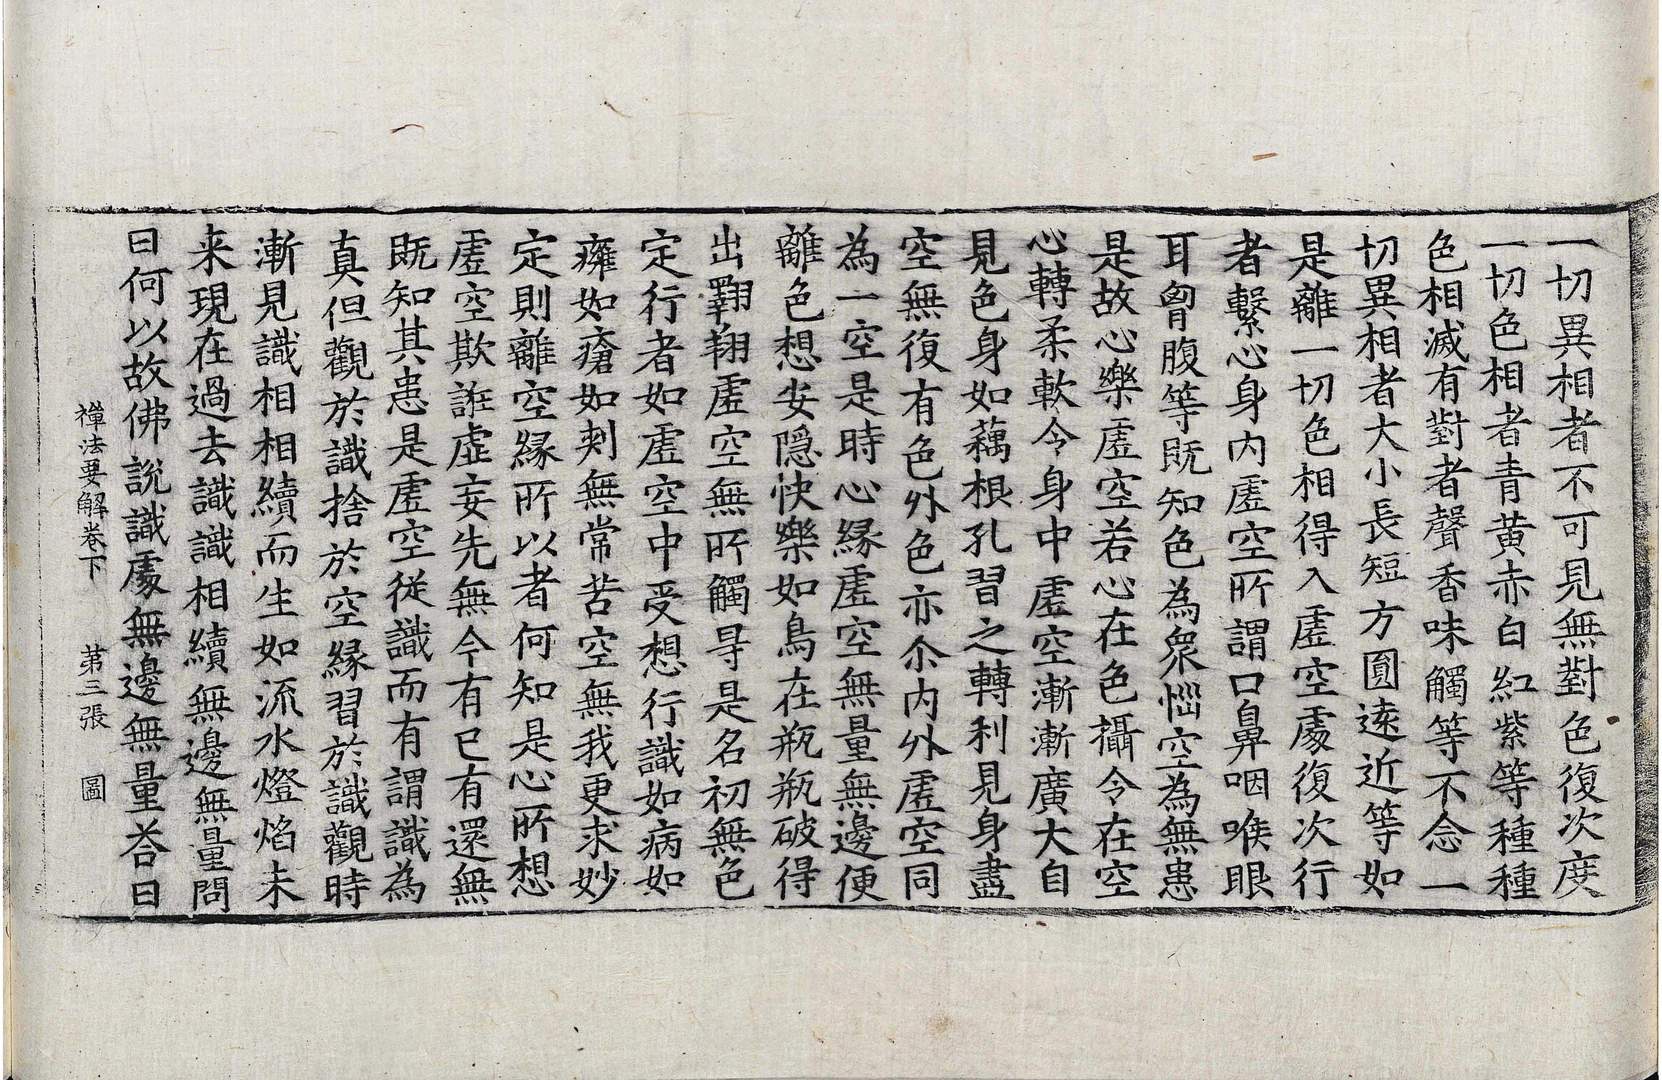 一切異相者不可見無對色復次度
一切色相者青黄赤白紅紫等種種
色相滅有對者聲香味觸等不念一
切異相者大小長短方圓遠近等如
是離一切色相得入虛空處復次行
者繫心身內虛空所謂口鼻咽喉眼
耳胷腹等既知色為衆惱空為無患
是故心樂虛空若心在色攝令在空
心轉柔軟令身中虛空漸漸廣大自
見色身如藕根孔習之轉利見身盡
空無復有色外色亦尒內外虛空同
為一空是時心緣虛空無量無邊便
離色想安隱快樂如鳥在瓶瓶破得
出翺翔虛空無所觸㝵是名初無色
定行者如虛空中受想行識如病如
癰如瘡如刾無常苦空無我更求妙
定則離空緣所以者何知是心所想
虛空欺誑虛妄先無今有已有還無
既知其患是虛空從識而有謂識為
真但觀於識捨於空緣習於識觀時
漸見識相相續而生如流水燈焰未
来現在過去識識相續無邊無量問
曰何以故佛說識處無邊無量荅曰
禪法要解卷下 第三張 圖